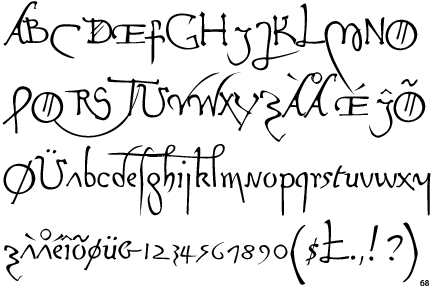 ABCDEFGHIJKLMNO
PQRSTUVWXYZÀÅÉÎÕ
ØÜabcdefghijklmnopqrstuvwxy
zàåéîõøüG1234567890($£.,!?)
68